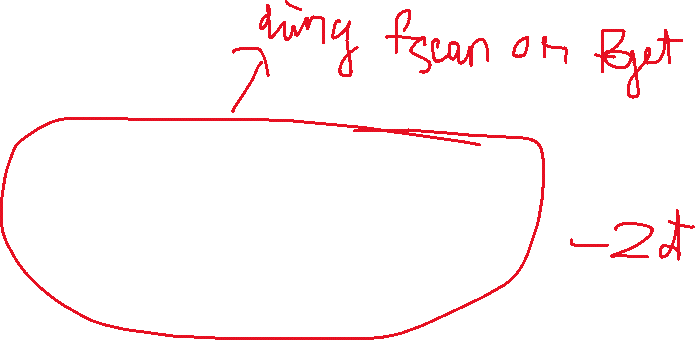 dùng fscan or fget
-2đ